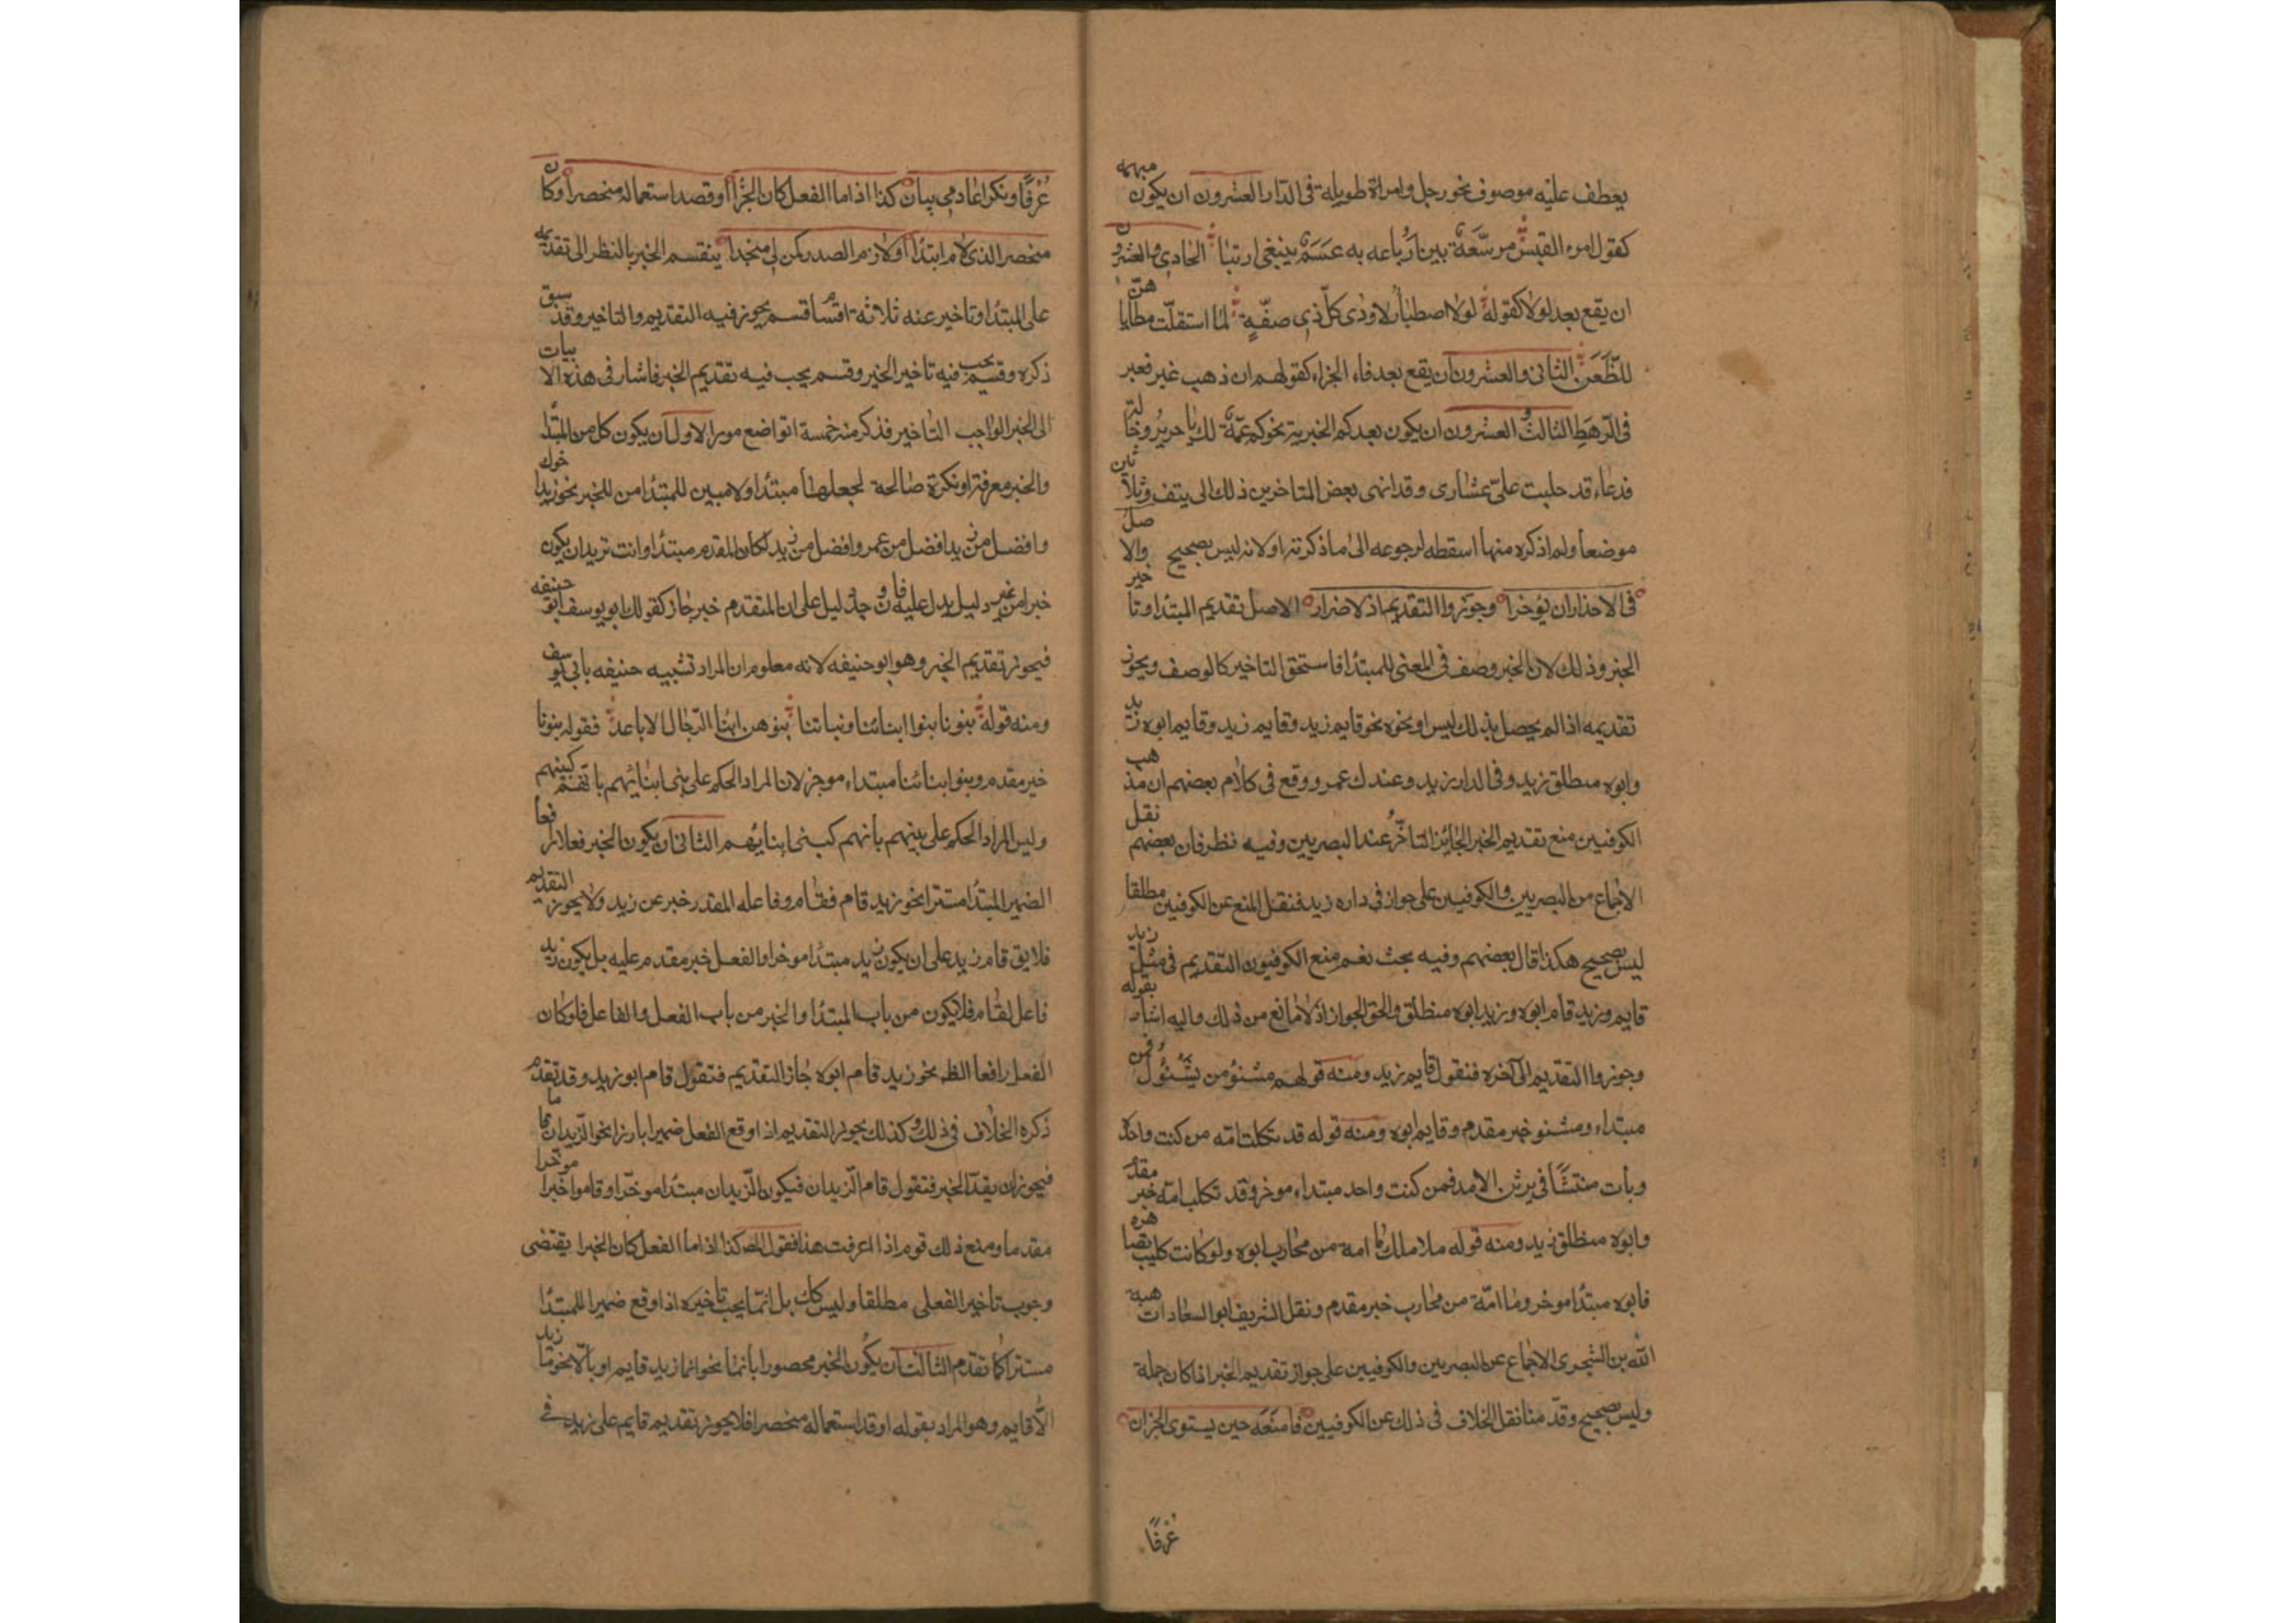 يعطف عليه موصوف نحو رجل وامراة طويلة فى الدار العشرون ان يكون مبهمه
كقول امرء القيس مرسّعَة بين ارباعه به عَسَمٌ يبتغى ارنبا الحادى والعشرون
ان يقع بعد لولا كقوله لولا اصطبار لاودى كلّ ذى مقة لما استقلت مطاياهن
للظّعَن الثانى والعشرون ان يقع بعد فاء الجزاء كقولهم ان ذهب غير فعير
فى الرّهط الثالث والعشرون ان يكون بعد كم الخبرية نحو كم عمّة لك يا جرير وخالة
فدعاء قد حلبت علىّ عشارى وقد انهى بعض المتاخرين ذلك الى نيف وثلاثين
موضعا ولم اذكره منها اسقطه لرجوعه الى ما ذكرته او لانه ليس بصحيح والاصل
فى الاخبار ان يؤخرا وجوزوا التقديم اذ لا ضررا الاصل تقديم المبتدا وتاخير
الخبر وذلك لان الخبر وصف فى المعنى للمبتدا فاستحق التاخير كالوصف ويجوز
تقديمه اذا لم يحصل بذلك لبس او نحوه نحو قايم زيد وقايم زيد وقايم ابوه زيد
وابوه منطلق زيد وفى الدار زيد وعندك عمرو ووقع فى كلام بعضهم ان مذهب
الكوفيين منع تقديم الخبر الجائز التاخّر عند البصريين وفيه نظر فان بعضهم نقل
الاجماع من البصريين والكوفيين على جواز فى داره زيد فنقل المنع عن الكوفيين مطلقا
ليس بصحيح هكذا قال بعضهم وفيه بحث نعم منع الكوفيون التقديم فى مثل زيد
قايم وزيد قام ابوه وزيد ابوه منطلق والحق الجواز اذ لا مانع من ذلك واليه اشار بقوله
وجوزوا التقديم الى آخره فنقول قايم زيد ومنه قولهم مشنوء من يشنؤك فمن
مبتداء ومشنو خبر مقدم وقايم ابوه ومنه قوله قد ثكلت امّه من كنت واحده
وبات منتشبًا فى برثن الاسد فمن كنت واحد مبتداء موخر وقد ثكلت امّه خبر مقدم
وابوه منطلق زيد ومنه قوله ملك ما امه من محارب ابوه ولو كانت كليب تصاهره
فابوه مبتدا موخر وما امّه من محارب خبر مقدم ونقل الشريف ابو السعادات هبة
الله بن الشجرى الاجماع عن البصريين والكوفيين على جواز تقديم الخبر اذا كان جملة
وليس بصحيح وقدّمنا نقل الخلاف فى ذلك عن الكوفيين فامنعه حين يستوى الجزان
عُرْفًا
عُرْفًا ونكرا عادمى بيان كذا اذا ما الفعل كان الخبرا او قصد استعماله منحصرا او كان
الذى لام ابتدا او لازم الصدر كمن لى منجدا ينقسم الخبر بالنظر الى تقديمه
على المبتدا وتاخير عنه ثلاثة اقسام قسم يجوز فيه التقديم والتاخير وقد سبق
ذكره وقسم يجب فيه تاخير الخبر وقسم يجب فيه تقديم الخبر فاشار فى هذه الابيات
الى الخبر الواجب التاخير فذكر منه خمسة مواضع الاول ان يكون كل من المبتدا
والخبر معرفة او نكرة صالحة لجعلها مبتدا ولا مبين للمبتدا من الخبر نحو زيد اخوك
وافضل من زيد افضل من عمرو وافضل من زيد لكان المقدم مبتدا وانت تريد ان يكون
خبرا من غير دليل يدل عليه فان وجد دليل على ان المتقدم خبر جاز كقولك ابو يوسف ابو حنيفه
فيجوز تقديم الخبر وهو ابو حنيفه لانه معلوم ان المراد تشبيه حنيفه بابى يوسف
ومنه قوله بنونا بنوا ابنائنا وبناتنا بنوهن ابنا الرّجال الاباعد فقوله بنونا
خبر مقدم وبنوا ابنائنا مبتداء موخر لان المراد الحكم على بنى ابنائهم بانهم كبنيهم
وليس المراد الحكم على بنيهم بانهم كبنى ابنائهم الثانى ان يكون الخبر فعلا رافعا
الضمير المبتدا مستترا نحو زيد قام فقام وفاعله المقدر خبر عن زيد ولا يجوز التقديم
فلا يق قام زيد على ان يكون زيد مبتدا موخرا والفعل خبر مقدم عليه بل يكون زيد
فاعل لقام فلا يكون من باب المبتدا والخبر من باب الفعل والفاعل فلو كان
الفعل رافعا الظ نحو زيد قام ابوه جاز التقديم فتقول قام ابو زيد وقد تقدم
ذكره الخلاف فى ذلك وكذلك يجوز التقديم اذا وقع الفعل ضميرا بارزا نحو الزيدان قاما
فيجوز ان يقدّم الخبر فتقول قام الزيدان فيكون الزيدان مبتدا موخّرا وقاموا خبرا
مقدما ومنع ذلك قوم اذا عرفت هذا فقول المص كذا اذا ما الفعل كان الخبرا يقتضى
وجوب تاخير الفعلى مطلقا وليس كك بل انما يجب تاخيره اذا وقع ضميرا للمبتدا
مستترا كما تقدم الثالث ان يكون الخبر محصورا بانما نحو انما زيد قايم او بالّا نحو ما زيد
الّا قايم وهو المراد بقوله او قد استعماله منحصرا فلا يجوز تقديم قايم على زيد فى